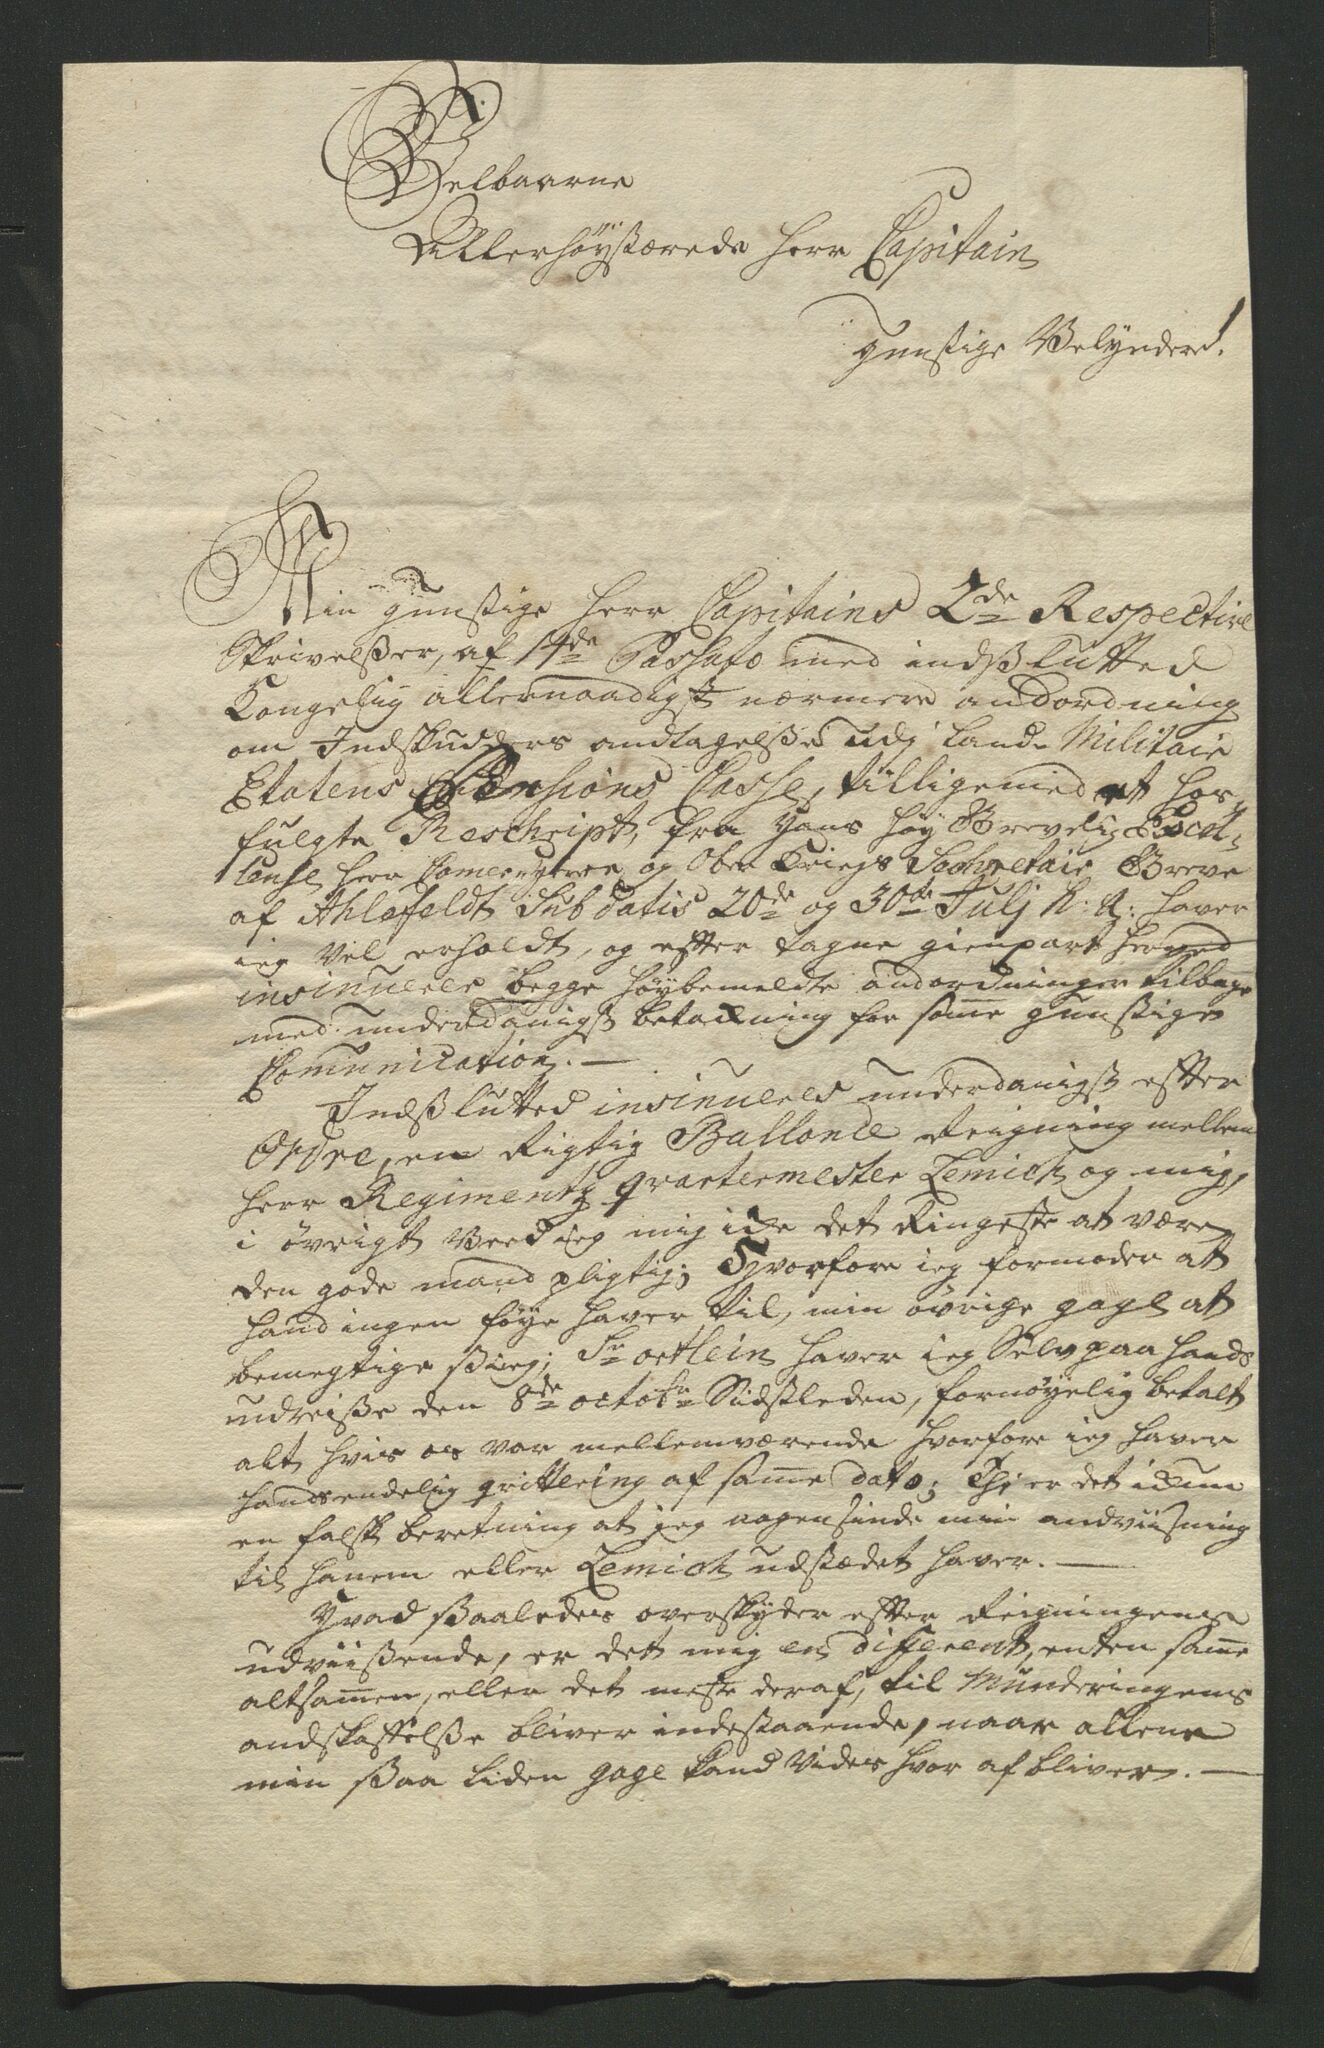 Velbaarne
Allerhøystærede Herr Capitain
gunstige Velynder!
Min gunstige Herr Capitains 2de Respective
Skrivelsser, af 14de Passato med indsslutted
Kongelig allernaadigst nærmere andordning
om Indskudders andtagelsse udj Land-Militair
Etatens Pensions Casse, tilligemed et her-
fulgte Reschript, fra Hans Høy Grevelig Excel-
lense Herr Camerherre og Ober Kriegs Sechretair Greve
af Ahlefeldt Sub datis 20de og 30te Julj h: a: haver
ieg vel erholdt, og efter tagne gienpart herved
insinueres begge høybemeldte andordninger tilbage
med underdanigst betakning for samme gunstige
Comunication. —
Indsslutted insinueres underdanigst efter
Ordre, en Rigtig Ballance Reigning mellem
Herr Regimentz qvartermester Lemich og mig,
i øvrigt veed ieg mig icke det Ringeste at være
den gode mand pligtig; Hvorfore ieg formoder at
hand ingen føye haver til, min øvrige gage at
bemegtige ssieg; Sr oertlein haver ieg Selv paa hands
udreisse den 8de octobr Sidstleden, fornøyelig betalt
alt hvis os var mellemværende hvorfore ieg haver
hands endelig qvittering af samme dato; Thi er det ickun
en falsk beretning at jeg nogensinde min andviisning
til hanem eller Lemich udstædet haver. —
Hvad ssaaledes overskyder efter Reigningens
udviissende, er det mig en different, enten samme
altsammen, eller det meste deraf, til Munderingens
andskaffelsse bliver indestaaende, naar allene
min ssaa liden gage kand vides hvor af bliver. —